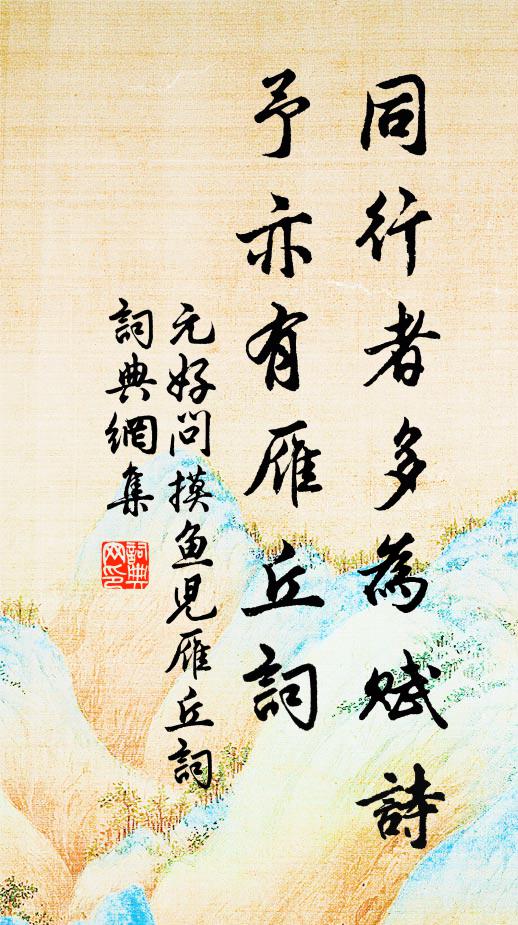 同行者多為賦詩
予亦有雁丘詞
元好問摸魚兒雁丘詞
詞典網集
詞典網印